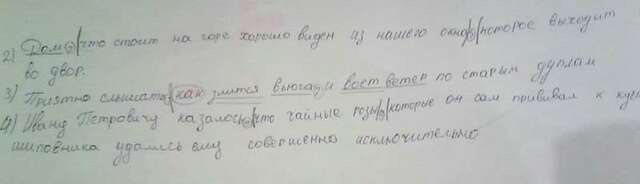 2) Дом, что стоит на горе хорошо виден из нашего окна, которое выходит
во двор.
3) Приятно слышать, как злится вьюга и воет ветер по старым дуплам
4) Ивану Петровичу казалось, что чайные розы, которые он сам прививал к
шиповника удались ему совершенно исключительно